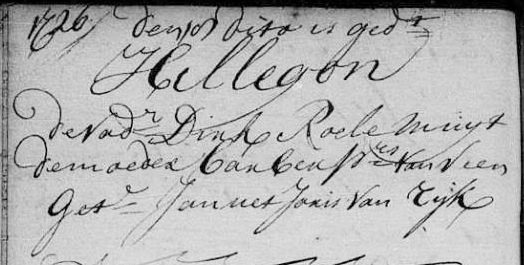 1726 den 10 dito is ged=t
Hillegon
de vad=r Dirk Roele Muijt
de moeder van Veen
Get=e Jannet Joris van Eijk